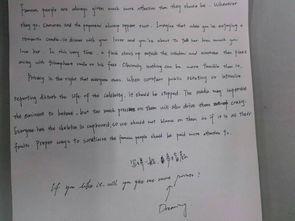 Famous people are always given much more attention than they should be. Wherever
they go, cameras and the paparazzi always appear soon. Imagine that when you're enjoying a
romantic candle-lit dinner with your lover and you're about to tell her how much you
love her. In this very time, a flash shoots up outside the window and someone
away with triumphant smile on his face. Obviously nothing can be more terrible than it.
Privacy is the right that everyone owns. When constant public
reporting disturb the life of the celebrity, it should be stopped. The media may supervise
the eminent to behave, but too much pressure on them will also drive them crazy.
Everyone has the skeleton in cupboard, so we should not blame on them as if it is all their
faults. Proper ways to scrutinize the famous people should be paid more attention to.
If you like it, will you give me more
Dreaming